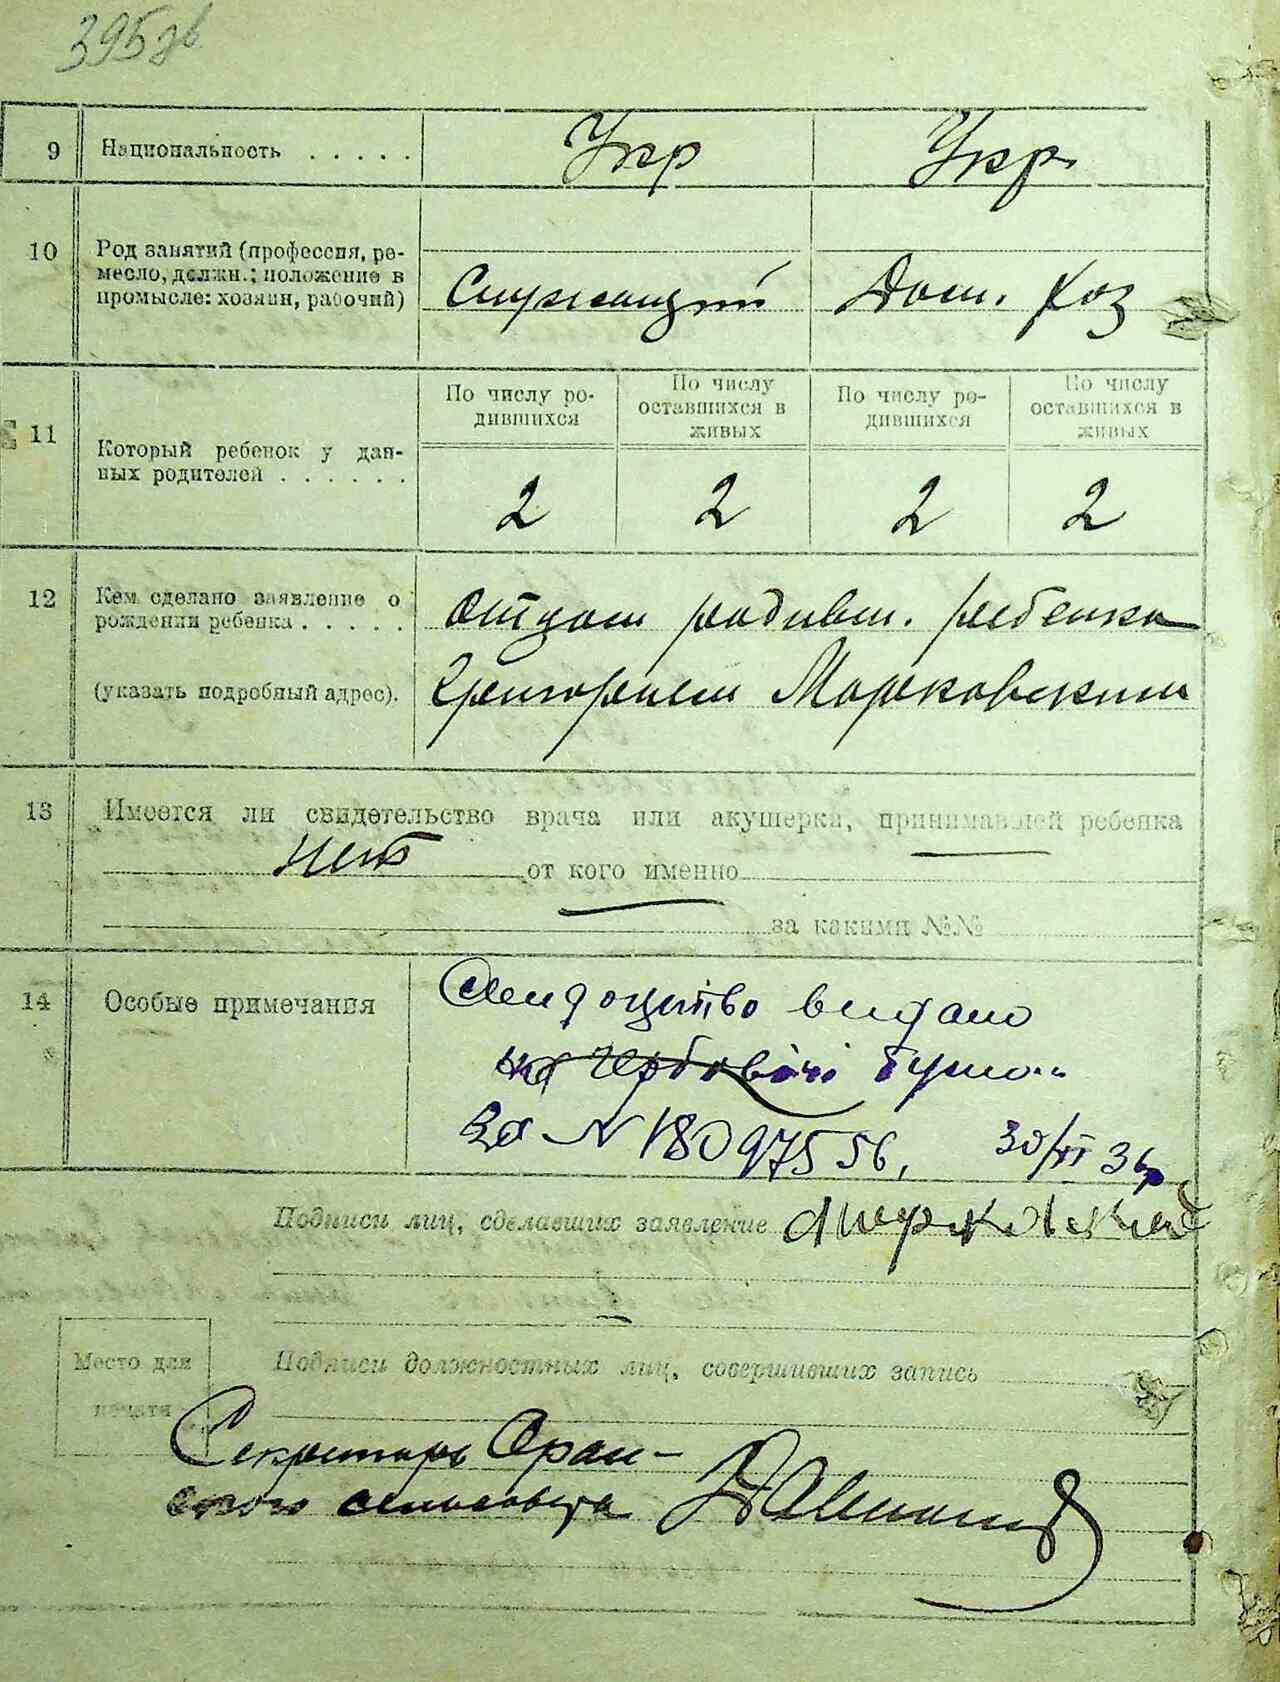 395 зв
9 Национальность . . . . . Укр Укр
10 Род занятий (профессия, ре-
месло, должн.; положение в
промысле: хозяин, рабочий)
Служащий Дом. хоз
По числу ро-
дившихся
По числу
оставшихся в
живых
По числу ро-
дившихся
По числу
оставшихся в
живых
11 Который ребенок у дан-
ных родителей . . . . . .
2 2 2 2
12 Кем сделано заявление о
рождении ребенка . . . . .
(указать подробный адрес).
отцом родивш. ребенка
Григорием Марковским
13 Имеется ли свидетельство врача или акушерки, принимавшей ребенка
нет от кого именно
за какими №№
14 Особые примечания
видано
на бумо..
За N 18097556, 30/VI 36р
Подписи лиц, сделавших заявление Марковский
Место для
печати
Подписи должностных лиц, совершивших запись
Секретарь
ского сельсовета